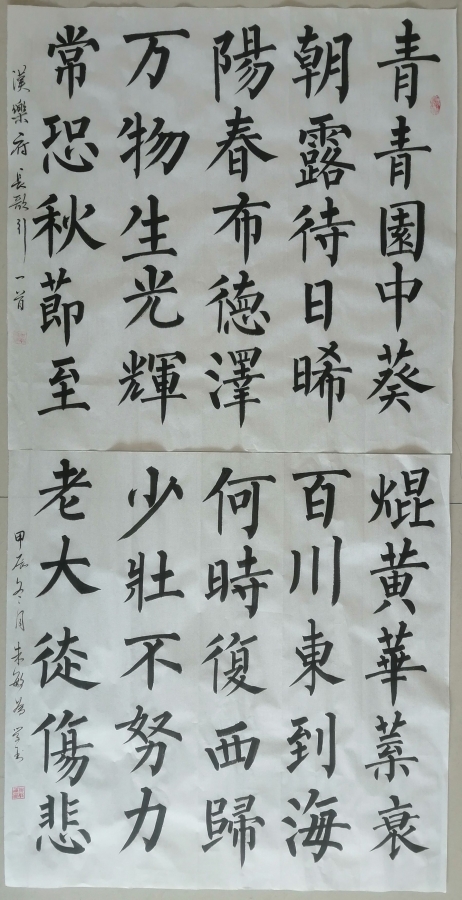 青青園中葵
朝露待日晞
陽春布德澤
万物生光輝
常恐秋節至
漢樂府長歌行一首
焜黄華葉衰
百川東到海
何時復西歸
少壯不努力
老大徒傷悲
甲辰冬月朱敏